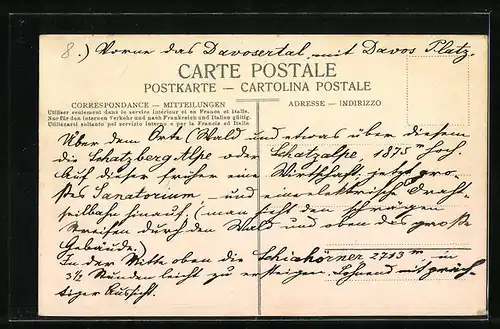 8.) Vorne das Davosertal, mit Davos Platz.
CARTE POSTALE
POSTKARTE — CARTOLINA POSTALE
CORRESPONDANCE — MITTEILUNGEN
ADRESSE — INDIRIZZO
Utiliser seulement dans le service intérieur et en France et Italie.
Nur für den internen Verkehr und nach Frankreich und Italien gültig.
Utilizzarsi soltanto pel servizio interno e per la Francia ed Italia
Über dem Orte (Wald und etwas über diesem
die Schatzberg Alpe oder Schatzalpe, 1875 m hoch.
Auf dieser früher eine Wirthschaft, jetzt gro-
ßes Sanatorium, und eine elektrische Draht-
seilbahn hinauf, (man sieht den schrägen
Streifen durch den Wald und oben das große
Gebäude.)
In der Mitte oben die Schiahörner 2713 m, in
3½ Stunden leicht zu ersteigen. Lohnend mit präch-
tiger Aussicht.